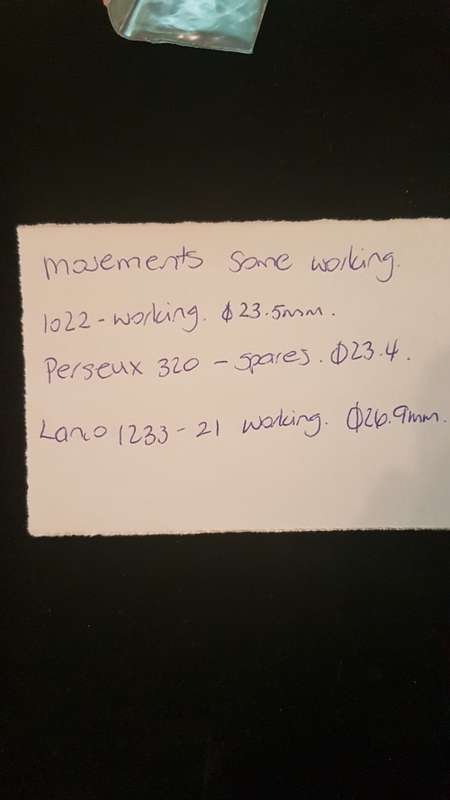 Movements some working.
1022 - working. Ø23.5mm.
Perseux 320 - spares. Ø23.4.
Lanco 1233 - 21 working. Ø26.9mm.